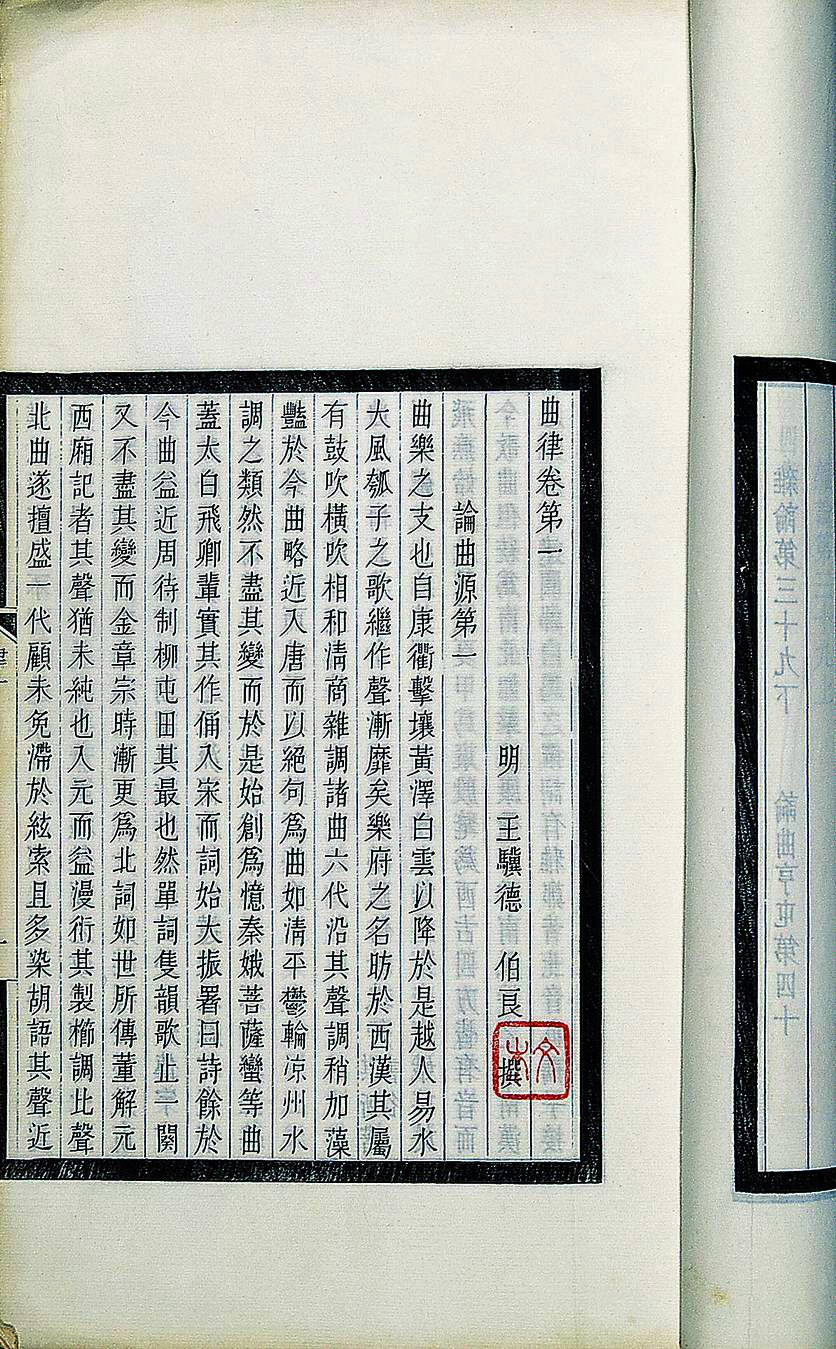 曲律卷第一
明　王驥德　伯良　撰
論曲源第一
曲樂之支也自康衢擊壤黃澤白雲以降於是越人易水
大風瓠子之歌繼作聲漸靡矣樂府之名昉於西漢其屬
有鼓吹橫吹相和清商雜調諸曲六代沿其聲調稍加藻
豔於今曲略近入唐而以絕句爲曲如清平鬱輪凉州水
調之類然不盡其變而於是始創爲憶秦娥菩薩蠻等曲
蓋太白飛卿輩實其作俑入宋而詞始大振署曰詩餘於
今曲益近周待制柳屯田其最也然單詞隻韻歌止一闋
又不盡其變而金章宗時漸更爲北詞如世所傳董解元
西廂記者其聲猶未純也入元而益漫衍其製櫛調比聲
北曲遂擅盛一代顧未免滯於絃索且多染胡語其聲近